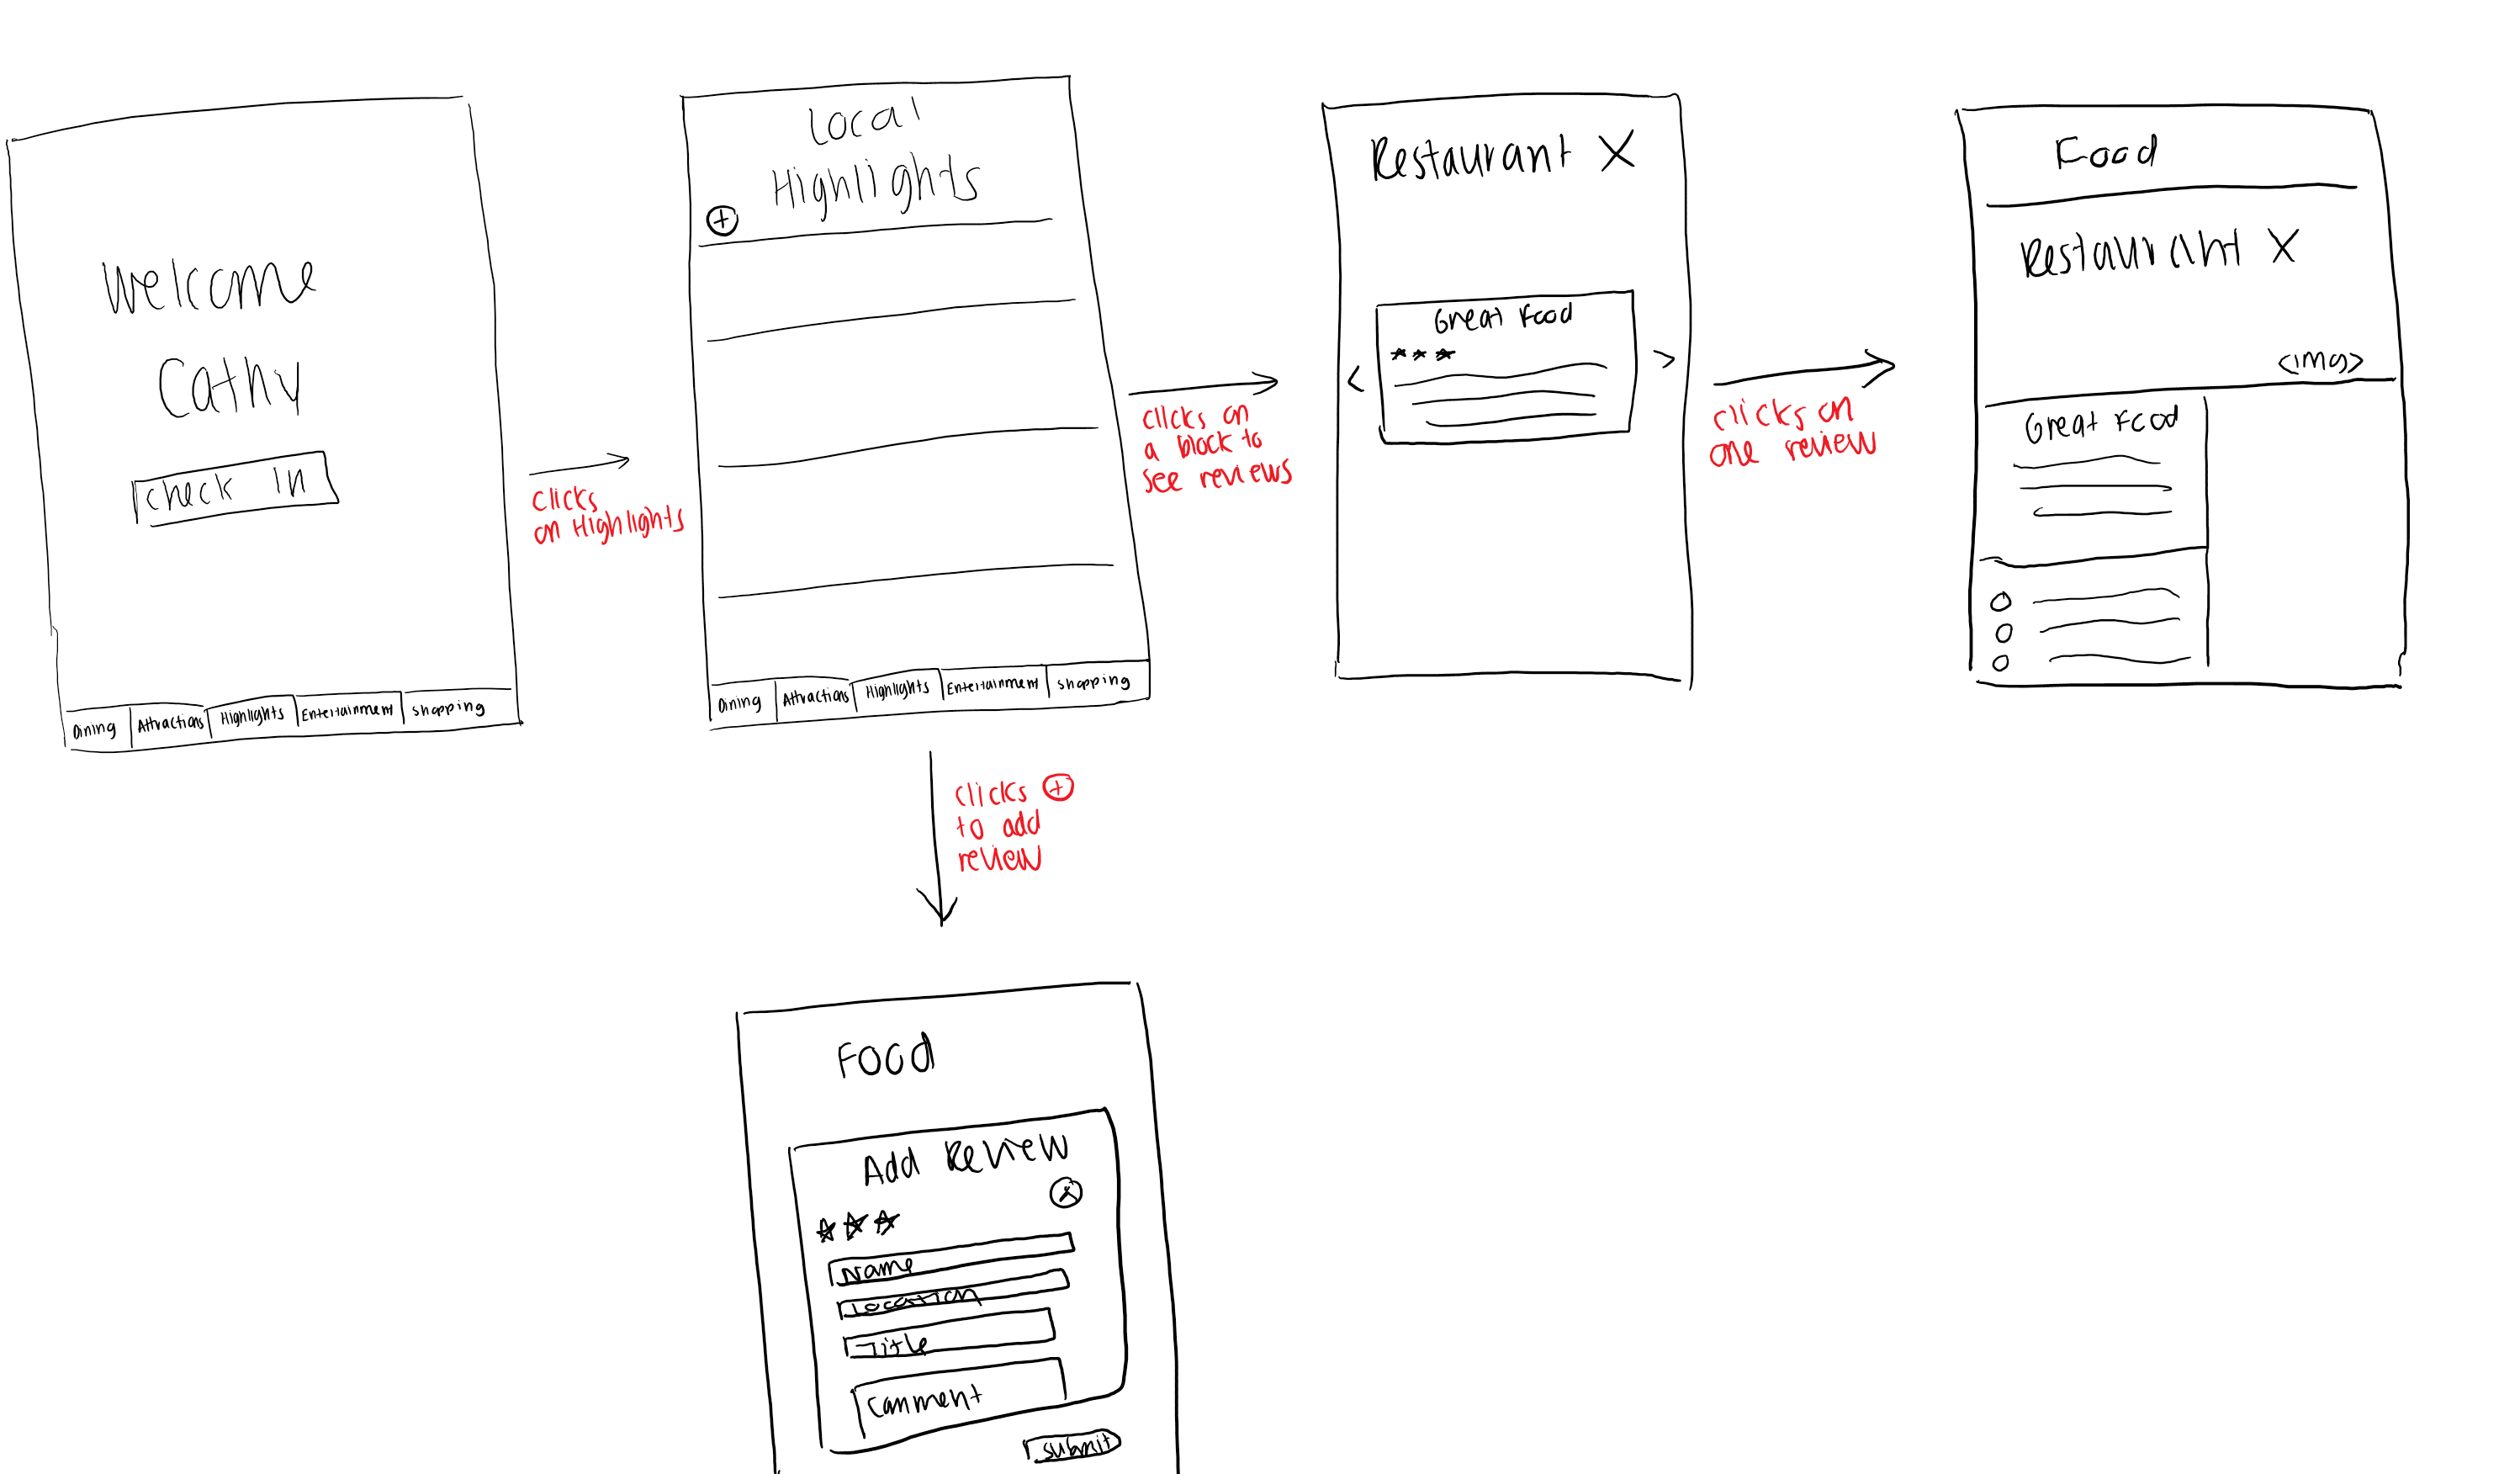 Welcome
Cathy
Check In
Dining Attractions Highlights Entertainment Shopping
clicks
on Highlights
Local
Highlights
+
Dining Attractions Highlights Entertainment Shopping
clicks on
a block to
see reviews
Restaurant X
Great Food
< >
clicks on
one review
Food
Restaurant X
<img>
Great Food
clicks +
to add
review
Food
Add Review
X
Name
Location
Title
Comment
submit